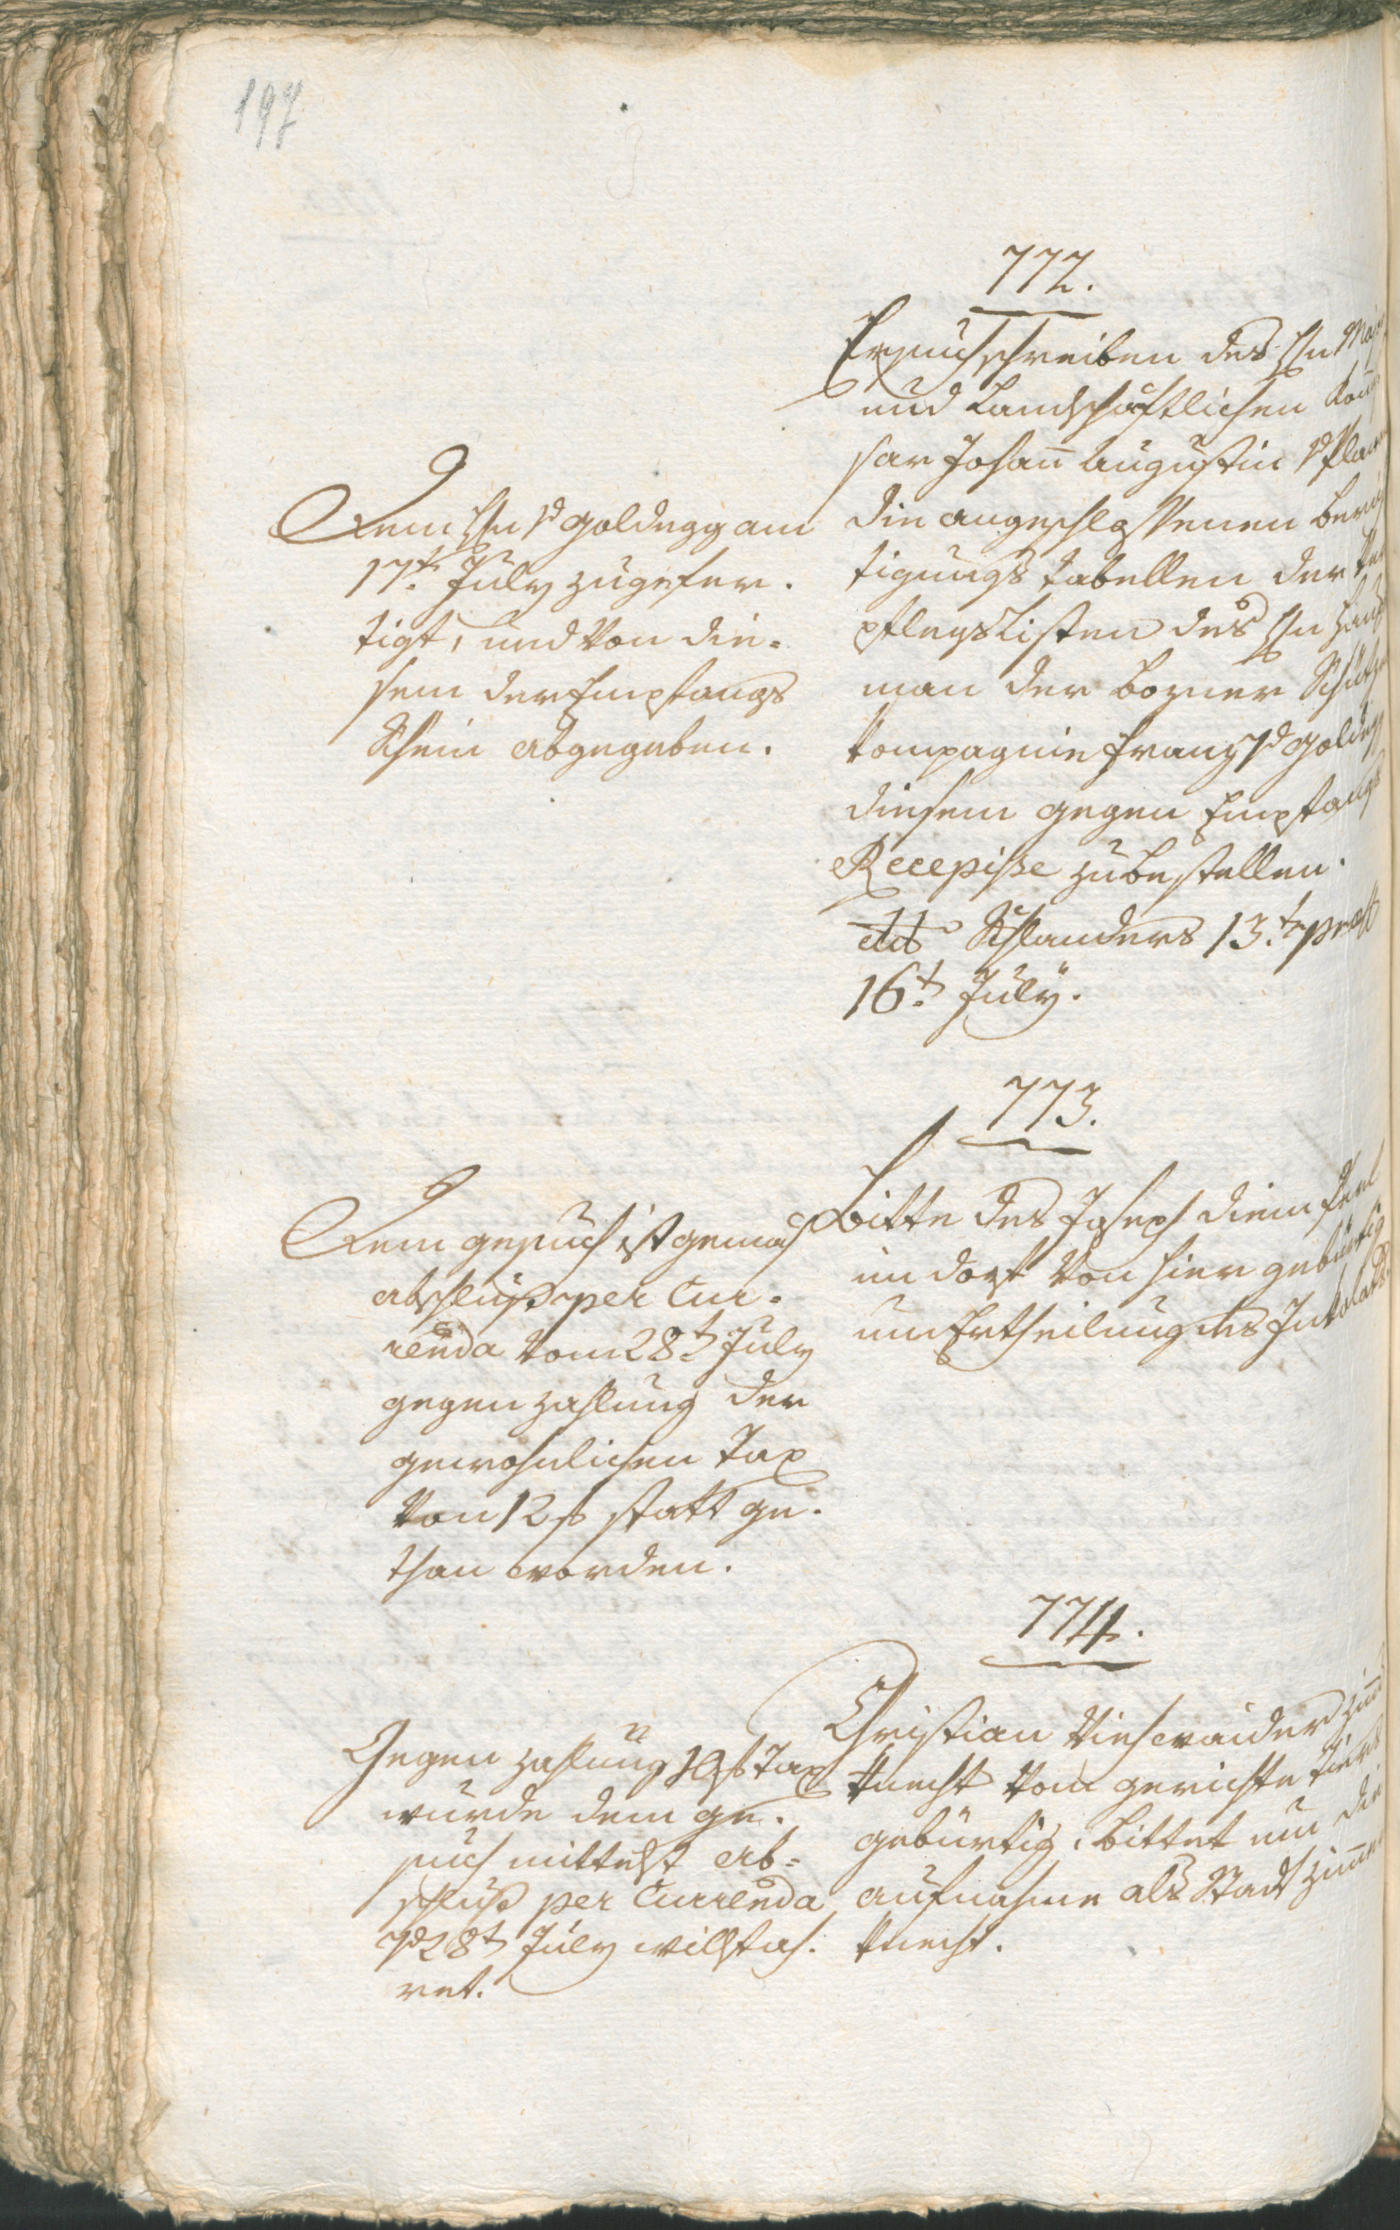 197
772.
Ersuchschreiben des Hn Major
und Landschaftlichen Kom̄
sar Johan̄ Augustin v Plaw
die angeschlossenen berich
tigungs tabellen der Ver
pflegslisten des Hn Haupt
man der bozner Schützen
Compagnie Franz v Goldegg
diesem gegen Empfangs
Recepisse zubestellen.
dto Schlanders 13.t præst
16.t July.
Dem Hn v Goldegg am
17.t July zugefer.
tigt, und von die=
sem der Empfangs
Schein abgegeben.
773.
Bitte des Joseph Diem
im dorf von hier gebürtig
um Ertheilung des Inkolats
Dem gesuch ist gemäß
abschluß per Cur.
renda vom 28.t July
gegen zahlung der
gewohnlichen Tax
von 12 f statt ge.
than worden.
774.
Christian Viehwaider Zim̄
knecht vom gerichte Tiers
gebürtig, bittet um die
aufnahme als Stadt Zim̄er
knecht.
Gegen zahlung 12 f Tax
wurde dem ge.
such mittelst ab=
schluß per Currenda
v 28t July willfah.
ret.